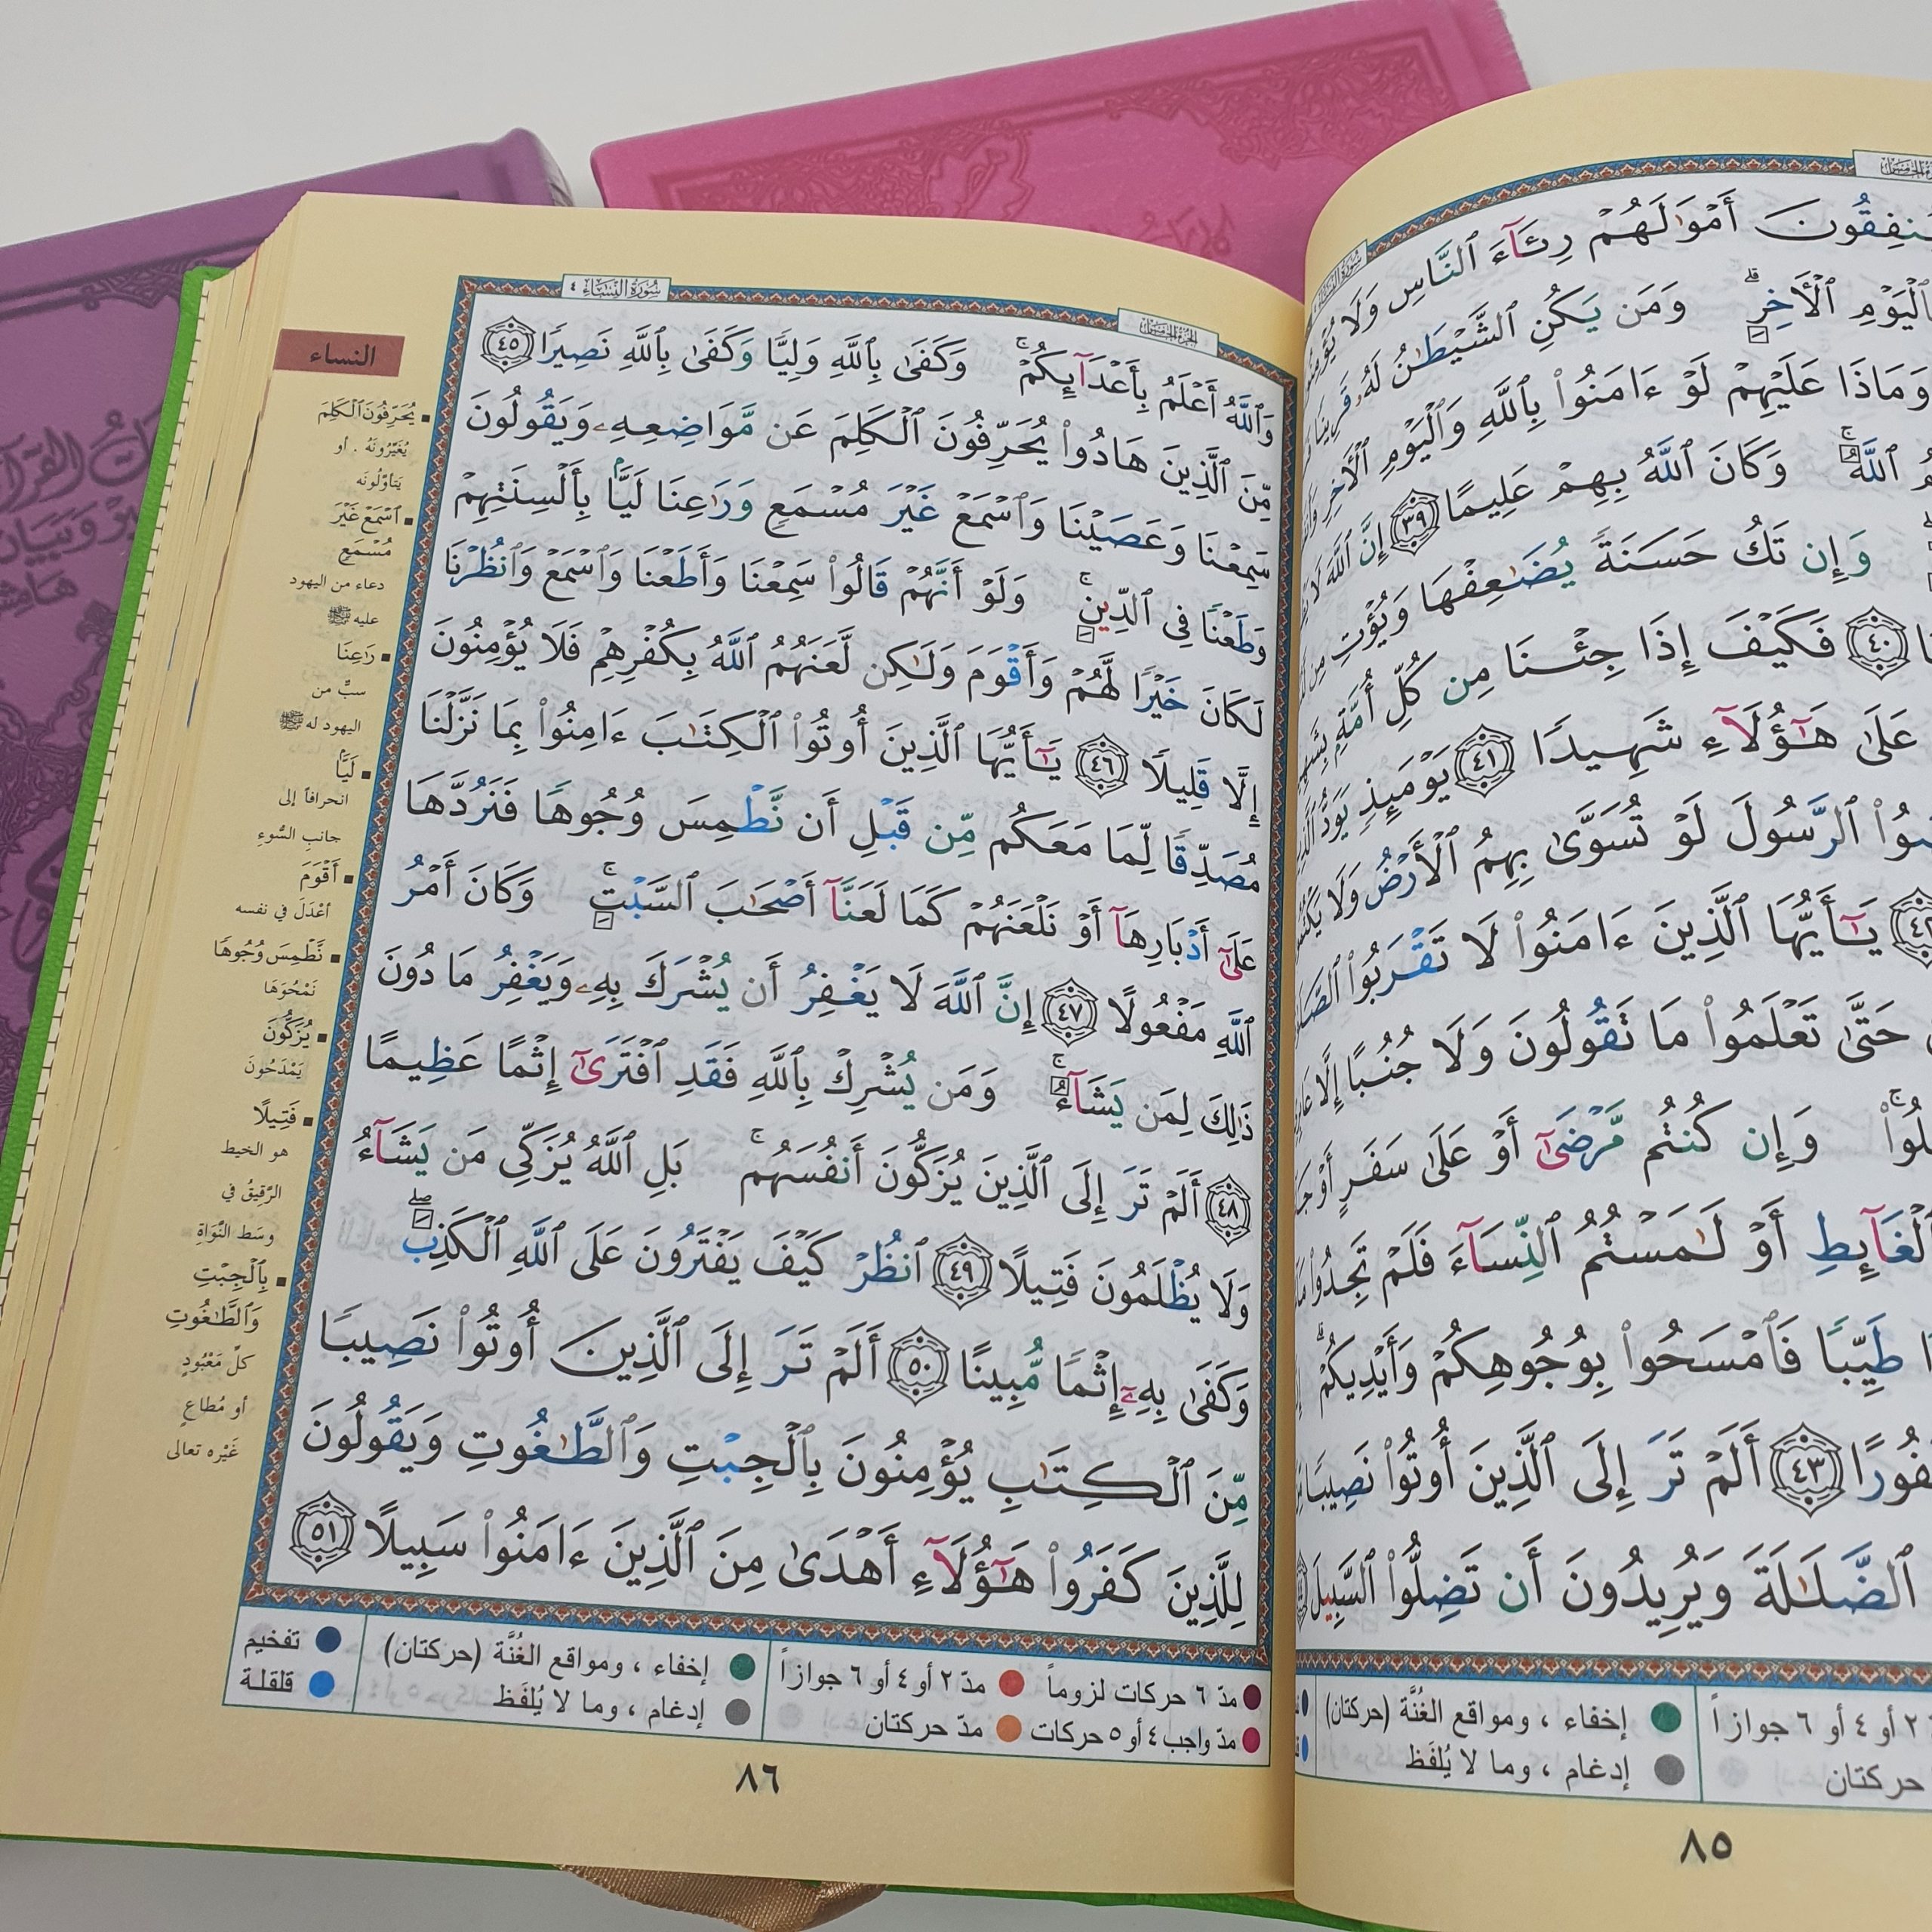 سُورَةُ النِّسَاءِ ٤
الجزء الخامس
وَٱللَّهُ أَعْلَمُ بِأَعْدَآئِكُمْ ۚ وَكَفَىٰ بِٱللَّهِ وَلِيًّا وَكَفَىٰ بِٱللَّهِ نَصِيرًا ٤٥
مِّنَ ٱلَّذِينَ هَادُوا۟ يُحَرِّفُونَ ٱلْكَلِمَ عَن مَّوَاضِعِهِۦ وَيَقُولُونَ
سَمِعْنَا وَعَصَيْنَا وَٱسْمَعْ غَيْرَ مُسْمَعٍ وَرَٰعِنَا لَيًّۢا بِأَلْسِنَتِهِمْ
وَطَعْنًا فِى ٱلدِّينِ ۚ وَلَوْ أَنَّهُمْ قَالُوا۟ سَمِعْنَا وَأَطَعْنَا وَٱسْمَعْ وَٱنظُرْنَا
لَكَانَ خَيْرًا لَّهُمْ وَأَقْوَمَ وَلَٰكِن لَّعَنَهُمُ ٱللَّهُ بِكُفْرِهِمْ فَلَا يُؤْمِنُونَ
إِلَّا قَلِيلًا ٤٦ يَٰٓأَيُّهَا ٱلَّذِينَ أُوتُوا۟ ٱلْكِتَٰبَ ءَامِنُوا۟ بِمَا نَزَّلْنَا
مُصَدِّقًا لِّمَا مَعَكُم مِّن قَبْلِ أَن نَّطْمِسَ وُجُوهًا فَنَرُدَّهَا
عَلَىٰٓ أَدْبَارِهَآ أَوْ نَلْعَنَهُمْ كَمَا لَعَنَّآ أَصْحَٰبَ ٱلسَّبْتِ ۚ وَكَانَ أَمْرُ
ٱللَّهِ مَفْعُولًا ٤٧ إِنَّ ٱللَّهَ لَا يَغْفِرُ أَن يُشْرَكَ بِهِۦ وَيَغْفِرُ مَا دُونَ
ذَٰلِكَ لِمَن يَشَآءُ ۚ وَمَن يُشْرِكْ بِٱللَّهِ فَقَدِ ٱفْتَرَىٰٓ إِثْمًا عَظِيمًا
٤٨ أَلَمْ تَرَ إِلَى ٱلَّذِينَ يُزَكُّونَ أَنفُسَهُم ۚ بَلِ ٱللَّهُ يُزَكِّى مَن يَشَآءُ
وَلَا يُظْلَمُونَ فَتِيلًا ٤٩ ٱنظُرْ كَيْفَ يَفْتَرُونَ عَلَى ٱللَّهِ ٱلْكَذِبَ ۖ
وَكَفَىٰ بِهِۦٓ إِثْمًا مُّبِينًا ٥٠ أَلَمْ تَرَ إِلَى ٱلَّذِينَ أُوتُوا۟ نَصِيبًا
مِّنَ ٱلْكِتَٰبِ يُؤْمِنُونَ بِٱلْجِبْتِ وَٱلطَّٰغُوتِ وَيَقُولُونَ
لِلَّذِينَ كَفَرُوا۟ هَٰٓؤُلَآءِ أَهْدَىٰ مِنَ ٱلَّذِينَ ءَامَنُوا۟ سَبِيلًا ٥١
النساء
يُحَرِّفُونَ ٱلْكَلِمَ
يُغَيِّرُونَهُ . أو
يَتَأَوَّلُونَه
ٱسْمَعْ غَيْرَ
مُسْمَعٍ
دعاء من اليهود
عليه ﷺ
رَاعِنَا
سبٌّ من
اليهود له ﷺ
لَيًّۢا
انحرافاً إلى
جانبِ السُّوءِ
أَقْوَمَ
أعْدَلَ في نفسه
نَّطْمِسَ وُجُوهًا
نَمْحُوَهَا
يُزَكُّونَ
يَمْدَحُونَ
فَتِيلًا
هو الخيط
الرَّقِيقُ في
وسَط النَّوَاةِ
بِٱلْجِبْتِ
وَٱلطَّٰغُوتِ
كلِّ مَعْبُودٍ
أو مُطاعٍ
غَيْره تعالى
مدّ ٦ حركات لزوماً مدّ ٢ أو ٤ أو ٦ جوازاً إخفاء ، ومواقع الغُنَّة (حركتان) تفخيم
مدّ واجب ٤ أو ٥ حركات مدّ حركتان إدغام ، وما لا يُلفَظ قلقلة
٨٦
أَمْوَٰلَهُمْ رِئَآءَ ٱلنَّاسِ وَلَا
ٱلْيَوْمِ ٱلْءَاخِرِ ۗ وَمَن يَكُنِ ٱلشَّيْطَٰنُ لَهُۥ قَرِينًا
وَمَاذَا عَلَيْهِمْ لَوْ ءَامَنُوا۟ بِٱللَّهِ وَٱلْيَوْمِ ٱلْءَاخِرِ
ٱللَّهُ ۚ وَكَانَ ٱللَّهُ بِهِمْ عَلِيمًا ٣٩ إِنَّ ٱللَّهَ لَا
وَإِن تَكُ حَسَنَةً يُضَٰعِفْهَا وَيُؤْتِ مِن
٤٠ فَكَيْفَ إِذَا جِئْنَا مِن كُلِّ أُمَّةٍ
عَلَىٰ هَٰٓؤُلَآءِ شَهِيدًا ٤١ يَوْمَئِذٍ يَوَدُّ
ٱلرَّسُولَ لَوْ تُسَوَّىٰ بِهِمُ ٱلْأَرْضُ وَلَا
يَٰٓأَيُّهَا ٱلَّذِينَ ءَامَنُوا۟ لَا تَقْرَبُوا۟
حَتَّىٰ تَعْلَمُوا۟ مَا تَقُولُونَ وَلَا جُنُبًا إِلَّا
وَإِن كُنتُم مَّرْضَىٰٓ أَوْ عَلَىٰ سَفَرٍ أَوْ
ٱلْغَآئِطِ أَوْ لَٰمَسْتُمُ ٱلنِّسَآءَ فَلَمْ تَجِدُوا۟
طَيِّبًا فَٱمْسَحُوا۟ بِوُجُوهِكُمْ وَأَيْدِيكُمْ ۗ
٤٣ أَلَمْ تَرَ إِلَى ٱلَّذِينَ أُوتُوا۟ نَصِيبًا
ٱلضَّلَٰلَةَ وَيُرِيدُونَ أَن تَضِلُّوا۟ ٱلسَّبِيلَ
٢ أو ٤ أو ٦ جوازاً إخفاء ، ومواقع الغُنَّة (حركتان)
حركتان إدغام ، وما لا يُلفَظ
٨٥